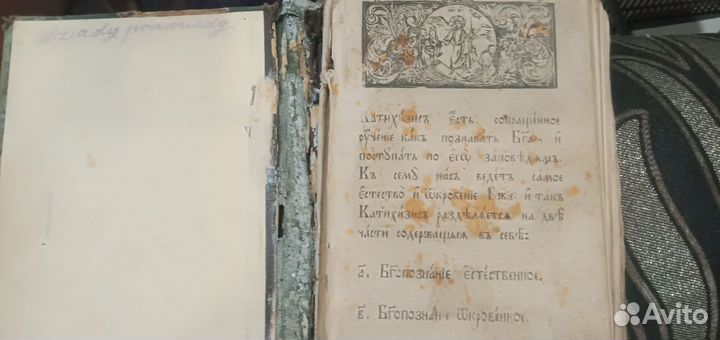 dziady pradziady
Катихи́зисъ є҆́сть сокраще́нное
ᲂу҆че́нїе ка́къ познава́ть Бг҃а, и҆
поступа́ть по є҆гѡ̀ за́повѣдѧмъ.
Къ семꙋ̀ на́съ веде́тъ са́мое
є҆стество̀ и҆ ѿкрове́нїе Бж҃їе: и҆ та́къ
Катихи́зисъ раздѣлѧ́етсѧ на двѣ̀
ча́сти содержа́щыѧсѧ въ себѣ̀:
а҃. Бг҃опозна́нїе є҆сте́ственное.
в҃. Бг҃опозна́нїе ѿкрове́нное.
Avito